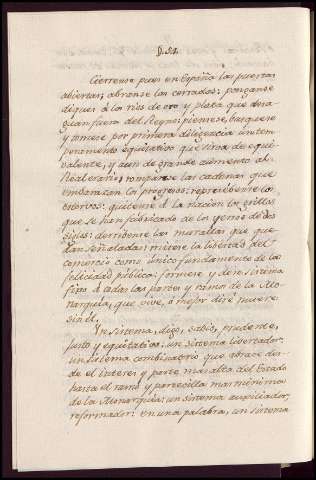 §.51.
Cierrense pues en España las puertas
abiertas, abranse las cerradas: pongase
diques á los rios de oro y plata que desa-
guan fuera del Reyno: piensese, busquese
y tomese por primera diligencia un tem-
peramento equitativo que sirva de equi-
valente, y aun de grande aumento al
Real erario: rompanse las cadenas que
embarazan los progresos:
estorvos: quitense á la nacion los grillos
que se han fabricado de los yerros de dos
siglos: derribense las murallas que que-
dan señaladas: mirese la libertad del
comercio como único fundamento de la
felicidad pública: formese y dese sistema
fixo á todas las partes y ramos de la Mo-
narquia, que vive, ó mejor diré muere
sin él.
Un sistema, digo, sabio, prudente,
justo y equitativo: un sistema libertador:
un sistema combinatorio que abrace des-
de el interes y parte mas alta del Estado
hasta el ramo y partecilla mas minima
de la Monarquia: un sistema auxiliador,
reformador: en una palabra, un sistema